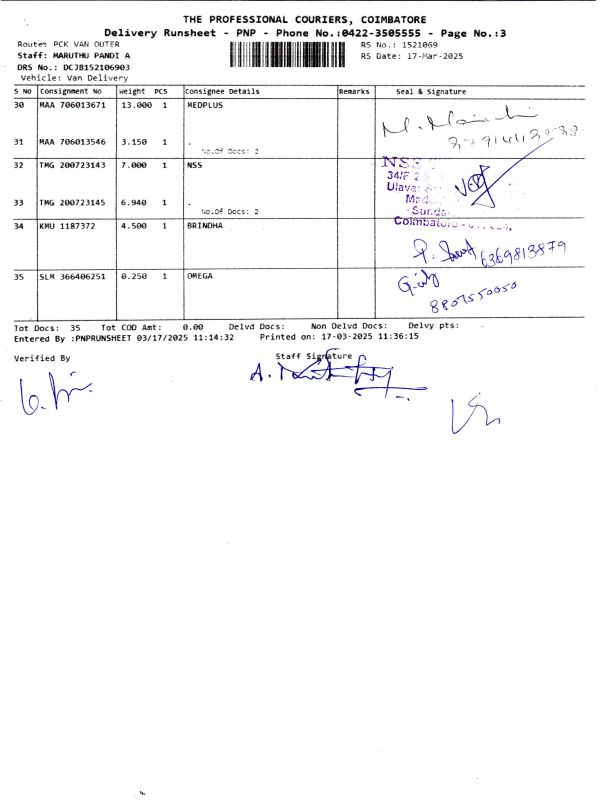 THE PROFESSIONAL COURIERS, COIMBATORE
Delivery Runsheet - PNP - Phone No.:0422-3505555 - Page No.:3
Route: PCK VAN OUTER
RS No.: 1521069
Staff: MARUTHU PANDI A
RS Date: 17-Mar-2025
DRS No.: DCJB152106903
Vehicle: Van Delivery
S No Consignment No Weight PCS Consignee Details Remarks Seal & Signature
30 MAA 706013671 13.000 1 MEDPLUS
31 MAA 706013546 3.150 1 .
No.Of Docs: 2
32 TMG 200723143 7.000 1 NSS
NSS
34/F
33 TMG 200723145 6.940 1 .
No.Of Docs: 2
Coimbatore
34 KMU 1187372 4.500 1 BRINDHA
6369813879
35 SLM 366406251 0.250 1 OMEGA
8807550050
Tot Docs: 35 Tot COD Amt: 0.00 Delvd Docs: Non Delvd Docs: Delvy pts:
Entered By :PNPRUNSHEET 03/17/2025 11:14:32 Printed on: 17-03-2025 11:36:15
Verified By Staff Signature